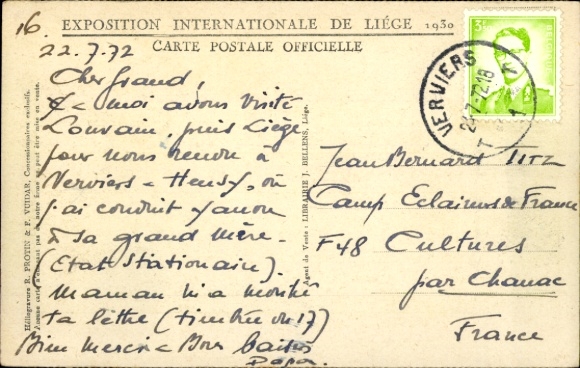 16.
EXPOSITION INTERNATIONALE DE LIÉGE 1930
CARTE POSTALE OFFICIELLE
22.7.72
Cher grand,
& moi avons visité
Louvain, puis Liège
pour nous rendre à
Verviers - Heusy, où
j'ai conduit
à sa grand mère -
(Etat stationaire).
Maman m'a montré
ta lettre (timbrée du 17)
Bien Merci - Bons baisers
Papa.
Héliogravure R. PROTIN & F. VUIDAR, Concessionnaires exclusifs.
Aucune carte n'émanant pas de notre firme ne peut être mise en vente.
Agent de Vente : LIBRAIRIE J. BELLENS, Liége.
VERVIERS
-7-72 18
1
3F
Jean Bernard TITZ
Camp Eclaireurs de France
F48 Cultures
par Chanac
France